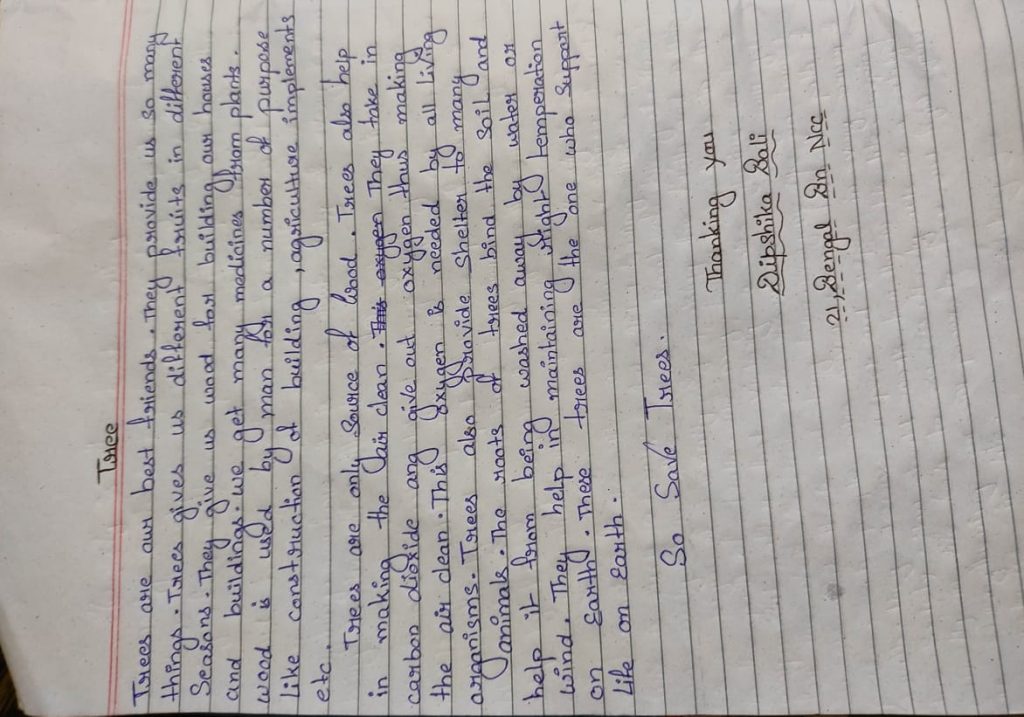 Tree
Trees are our best friends. They provide us so many
things. Trees gives us different fruits in different
Seasons. They give us wood for building our houses
and buildings. we get many medicines from plants.
wood is used by man for a number of purpose
like construction of building, agriculture implements
etc.
Trees are only Source of Wood. Trees also help
in making the air clean. This oxygen They take in
carbon dioxide ang give out oxygen thus making
the air clean. This oxygen is needed by all living
organisms. Trees also provide Shelter to many
animals. The roots of trees bind the soil and
help it from being washed away by water or
wind. They help in maintaining right temperation
on Earth. These trees are the one who support
life on Earth.
So Save Trees.
Thanking you
Dipshika Bali
21, Bengal Bn Ncc